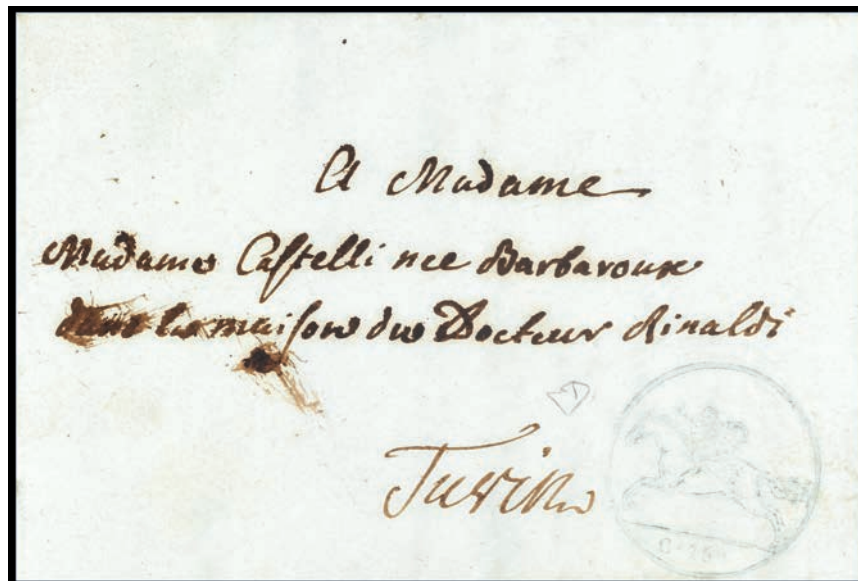 A Madame
Madame Castelli nee Barbaroux
dans la maison du Docteur Rinaldi
Turin
C. 25